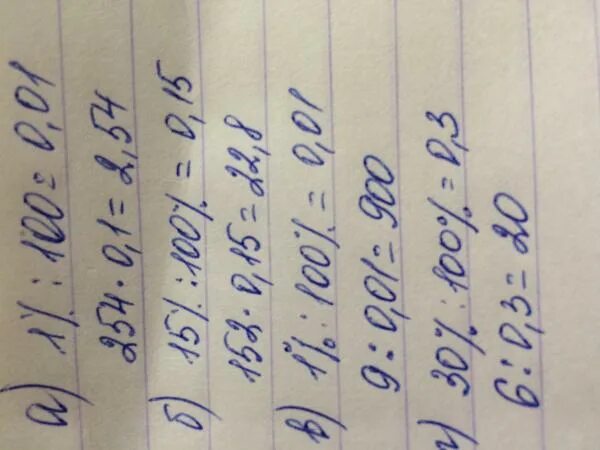 а) 1% : 100 = 0,01
254 · 0,1 = 2,54
б) 15% : 100% = 0,15
152 · 0,15 = 22,8
в) 1% : 100% = 0,01
9 : 0,01 = 900
г) 30% : 100% = 0,3
6 : 0,3 = 20